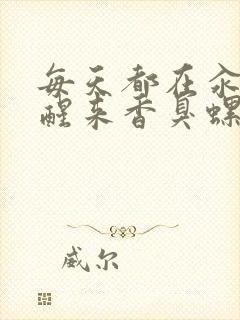 每天都在汆
醒来香臭螺
威尔